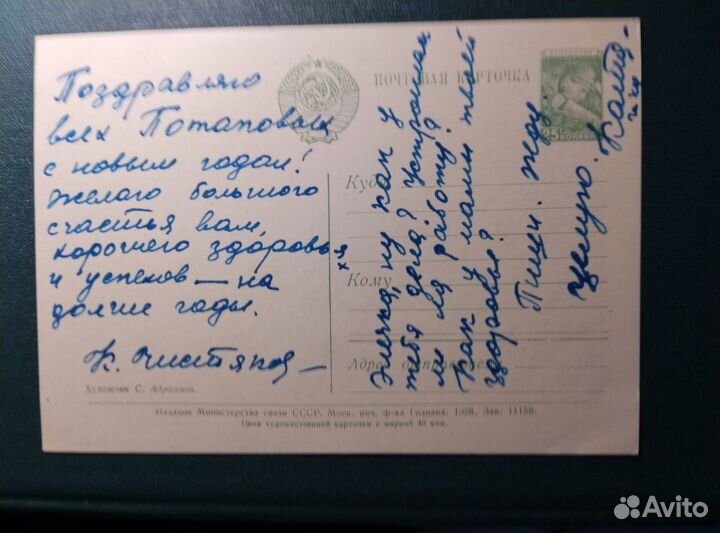 Поздравляю
всех Потаповых
с новым годом!
Желаю большого
счастья вам,
хорошего здоровья
и успехов — на
долгие годы.
К. Чистяков
Художник С. Адрианов.
ПОЧТОВАЯ КАРТОЧКА
25 КОПЕЕК
Куда
Кому
Адрес отправителя:
Элечка, ну как у
тебя дела? Устроилась
ли на работу?
Как у мамы твоей
здоровье?
Пиши. Жду
Целую.
Издание Министерства связи СССР. Моск. печ. ф-ка Гознака. 1958. Зак. 11159.
Цена художественной карточки с маркой 40 коп.
Avito